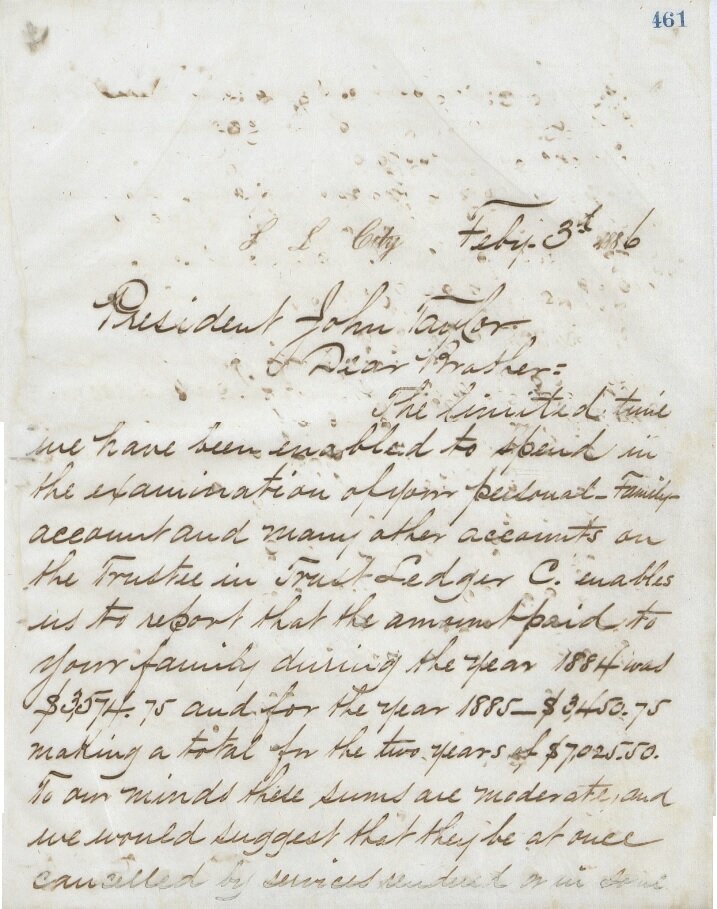 461
S L City Feby. 3d 1886
President John Taylor
Dear Brother:=
The limited time
we have been enabled to spend in
the examination of your personal - Family
account and many other accounts on
the Trustee in Trust Ledger C. enables
us to report that the amount paid to
your family during the year 1884 was
$3,574.75 and for the year 1885 - $3,450.75
making a total for the two years of $7,025.50.
To our minds these sums are moderate, and
we would suggest that they be at once
cancelled by services rendered or in some